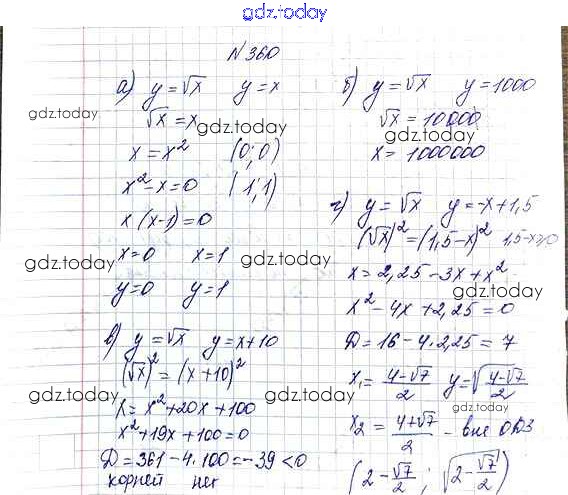 gdz.today
№ 360
а) y = √x   y = x
√x = x
x = x²   (0; 0)
x² - x = 0   (1; 1)
x (x-1) = 0
x = 0   x = 1
y = 0   y = 1
б) y = √x   y = 1000
√x = 10000
x = 1000000
в) y = √x   y = x + 10
(√x)² = (x + 10)²
x = x² + 20x + 100
x² + 19x + 100 = 0
D = 361 - 4·100 = -39 < 0
корней нет
г) y = √x   y = -x + 1,5
(√x)² = (1,5 - x)²   1,5 - x ≥ 0
x = 2,25 - 3x + x²
x² - 4x + 2,25 = 0
D = 16 - 4·2,25 = 7
x₁ = (4-√7)/2   y = √((4-√7)/2)
x₂ = (4+√7)/2 - вне ОДЗ
(2 - √7/2 ; √(2 - √7/2))
gdz.today
gdz.today
gdz.today
gdz.today
gdz.today
gdz.today
gdz.today
gdz.today
gdz.today